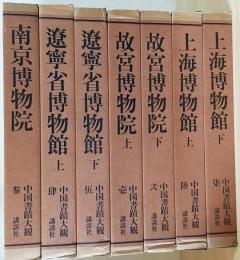 上海博物館 下
中国書蹟大観 柒
講談社
上海博物館 上
中国書蹟大観 陸
講談社
故宮博物院 下
中国書蹟大観 弍
講談社
故宮博物院 上
中国書蹟大観 壱
講談社
遼寧省博物館 下
中国書蹟大観 伍
講談社
遼寧省博物館 上
中国書蹟大観 肆
講談社
南京博物院
中国書蹟大観 参
講談社